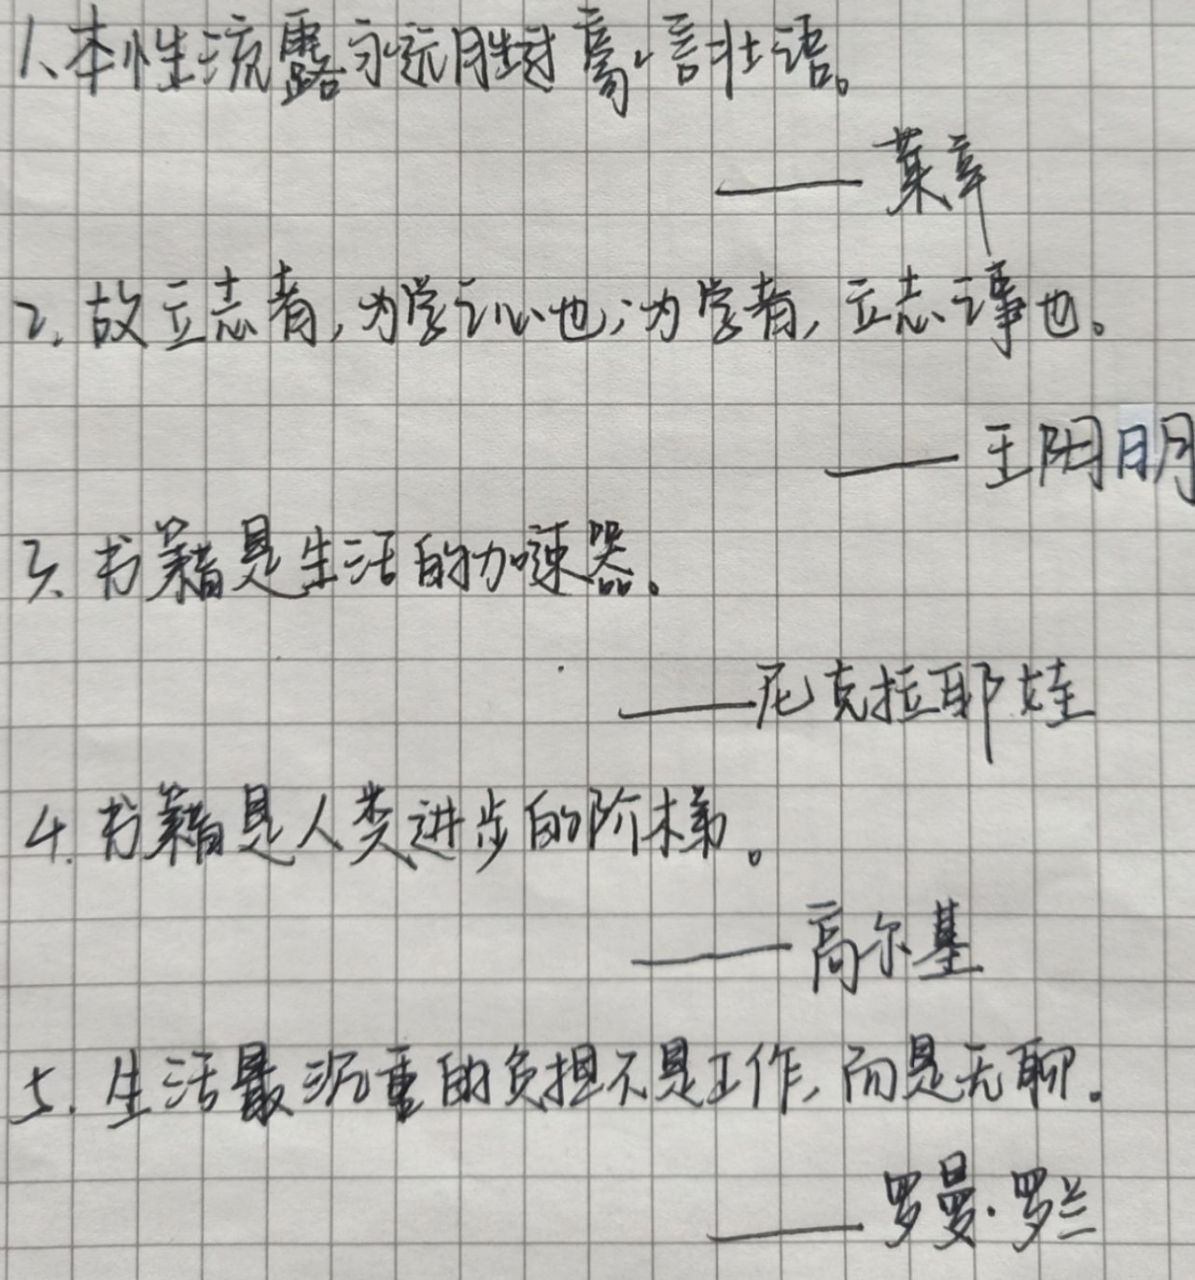 1、本性流露永远胜过豪言壮语。
——莱辛
2. 故立志者,为学之心也;为学者,立志之事也。
——王阳明
3、书籍是生活的加速器。
——尼克拉耶娃
4. 书籍是人类进步的阶梯。
——高尔基
5. 生活最沉重的负担不是工作,而是无聊。
——罗曼·罗兰